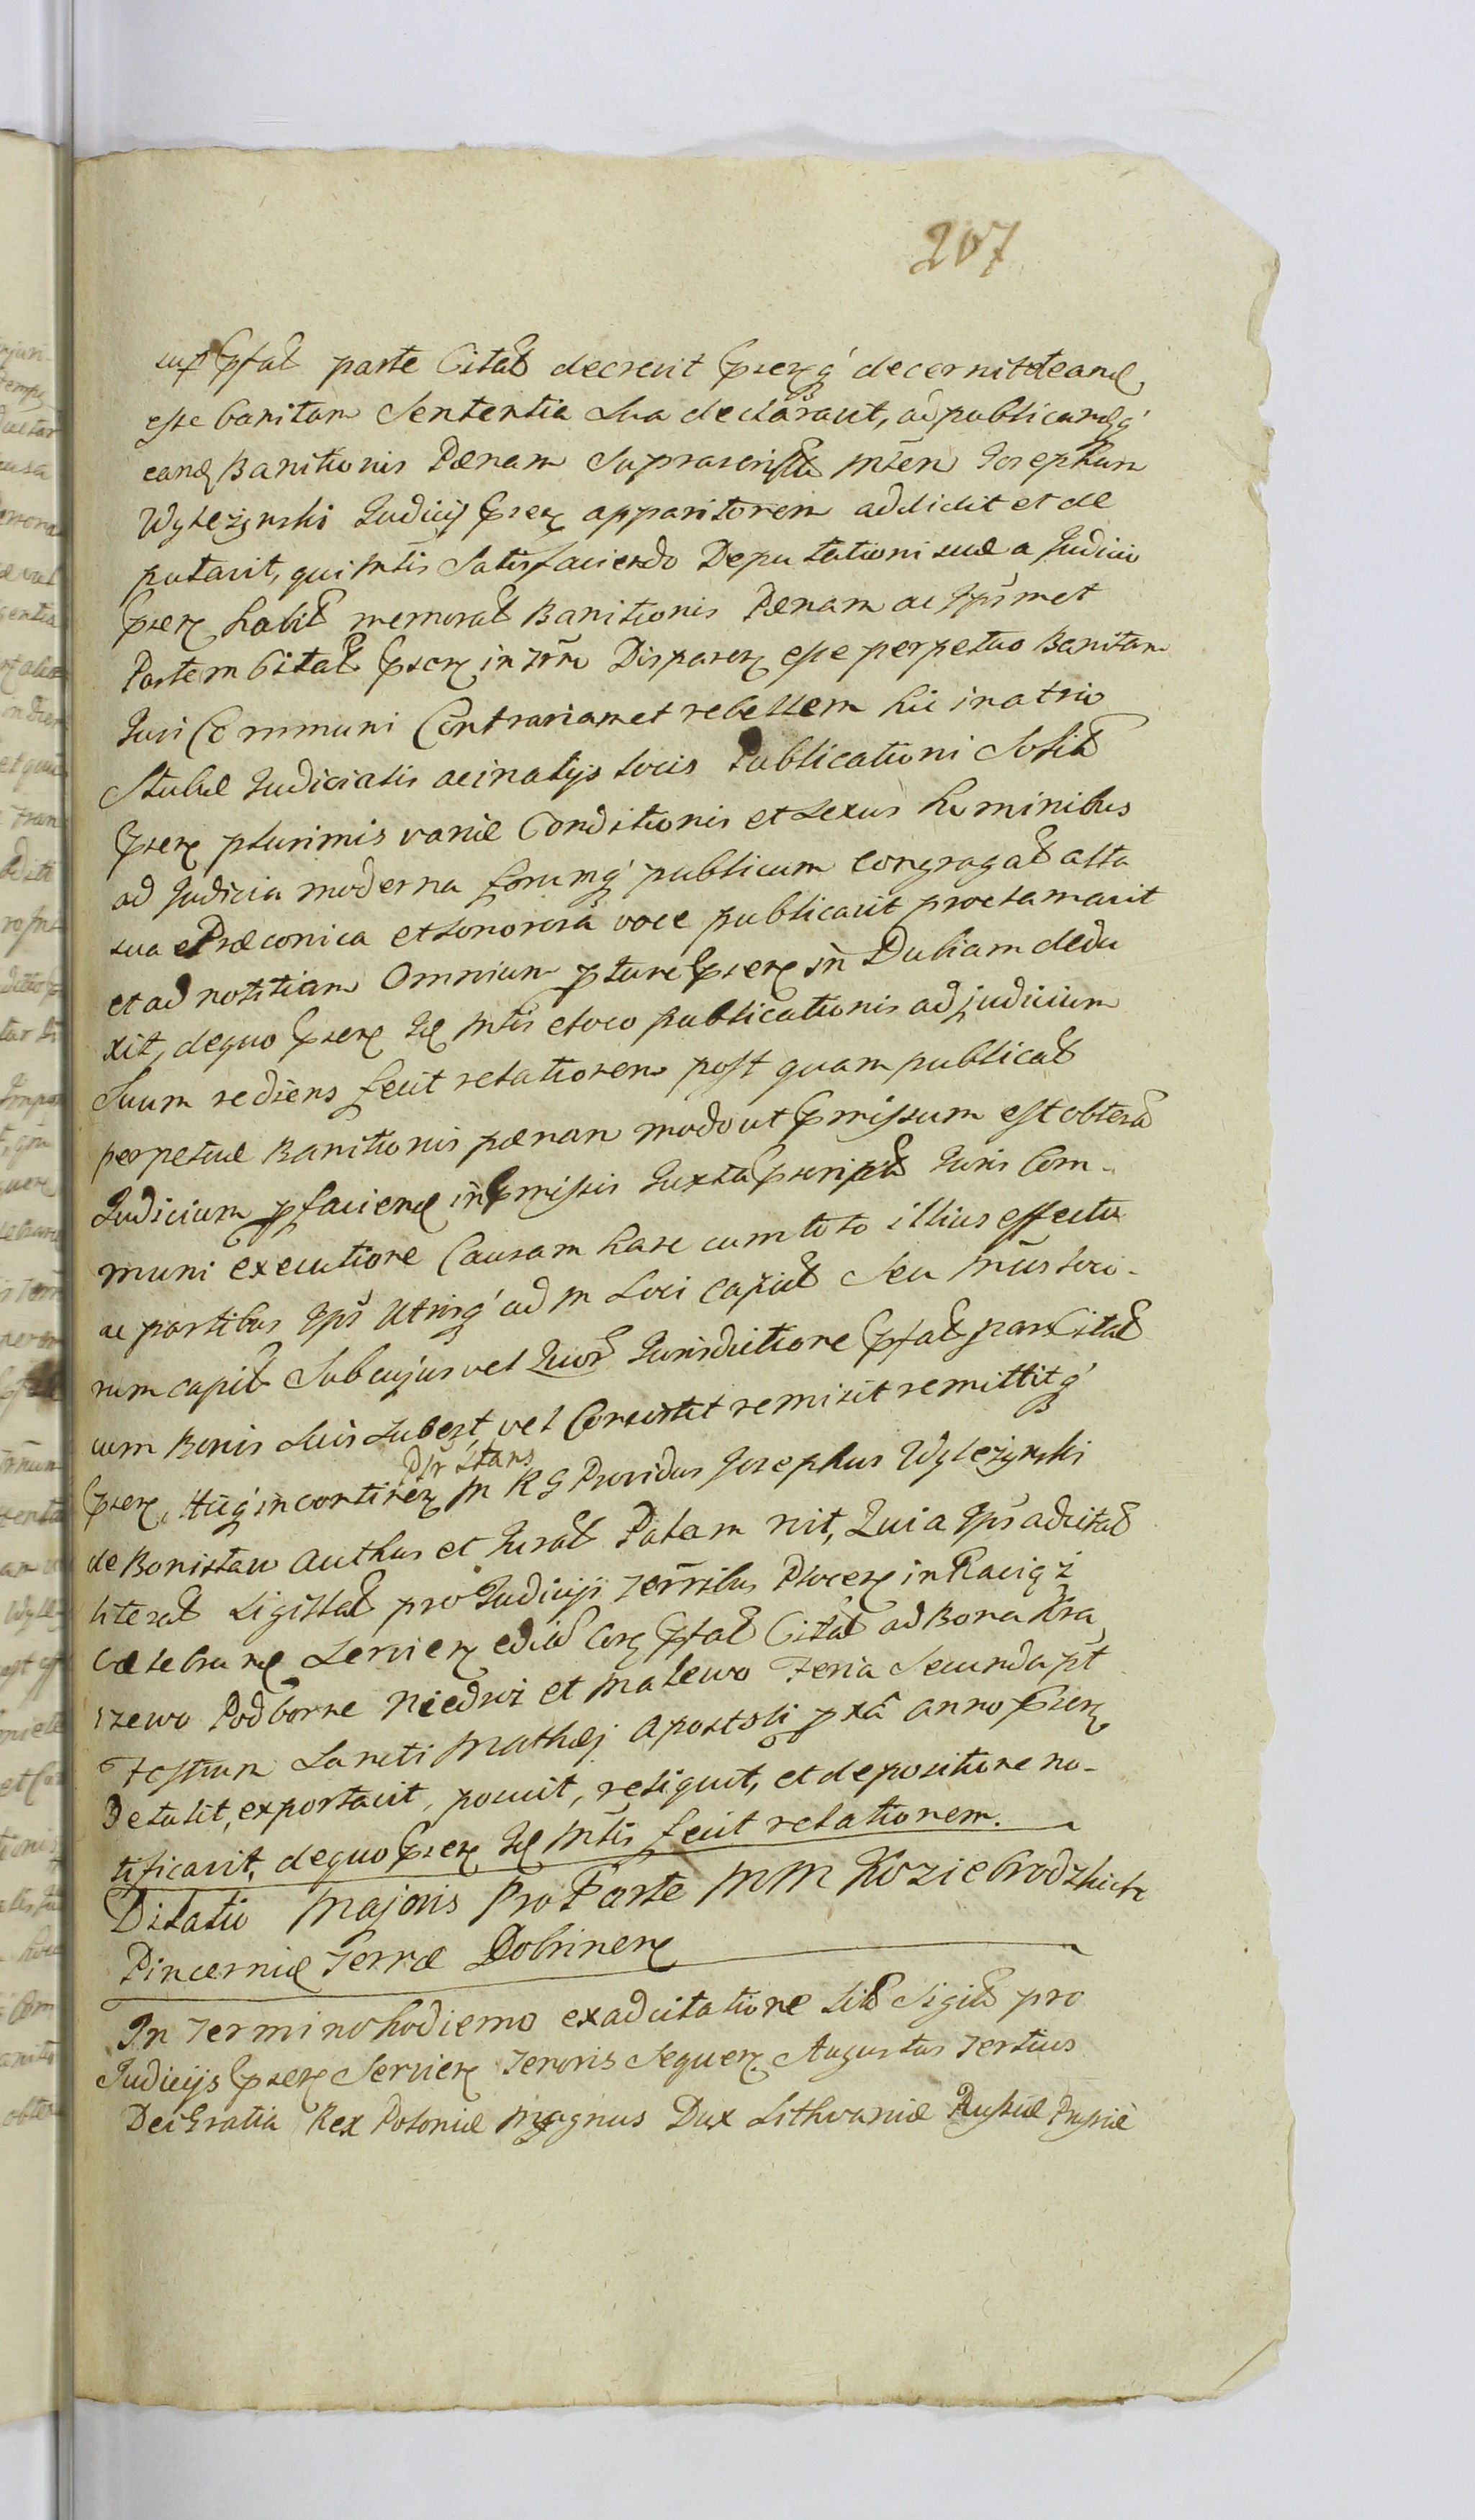 207
sup pfat parte Citat decrevit psenq decernit deand
esse banitam Sententia Sua declaravit, ad publicandq
eand Banitionis Pœnam Suprascript Mtem Josephum
Wyleżynski Judicij psen apparitorem addidit et de
putavit, qui Mtis Satisfaciendo Deputationi suæ a Judicio
psen habit memorat Banitionis Pœnam ac Ipsmet
Partem Citat psen in Trm Disparen esse perpetuo Banitam
Juri Communi Contrariam et rebellem hic in atrio
Stubæ Judicialis ac in alijs locis Publicationi Solit
psen plurimis variæ Conditionis et sexus hominibus
ad Judicia moderna forumq publicum congregat alta
sua Præconica et sonorosa voce publicavit proclamavit
et ad notitiam Omnium pture psen in Dubiam dedu
xit, de quo psen Id Mtis e loco publicationis ad judicium
Suum rediens fecit relationem post quam publicat
perpetuæ Banitionis pœnam modo ut pmissum est obtent
Judicium pfaciend in pmissis Juxta pscript Juris Com-
muni executione Causam hanc cum toto illius effectu
ac partibus Ips Utrisq ad M Loci Capit Seu Mtus loco-
rum capit Sub cujus vel Quor Jurisdictione pfat pars Citat
cum Bonis Suis Subest, vel Consistit remisit remittitq
psen, Hicq in continen M R G Providus Josephus Wyleżynski
Psr Stans
de Bonislaw authus et Jurat Palam rit, Quia Ips adcitat
literat Sigillat pro Judicijs Terribus Plocen in Raciąż
Cælebrand Servien edit Cor pfat Citat ad Bona Kra
szewo Podborne Niedroż et Malewo Feria Secunda pt
Festum Sancti Mathæj Apostoli pxa anno psen
Detulit, exportavit, posuit, reliquit, et depositione no-
tificavit, de quo psen Id Mtis fecit relationem.
Dilatio Majoris Pro Parte MM Koziebrodzkich
Pincernæ Terræ Dobrinen
In Termino hodierno ex adcitatione Lit Sigil pro
Judicijs psen Servien Tenoris Sequen. Augustus Tertius
Dei Gratia Rex Poloniæ Magnus Dux Lithvaniæ Russiæ Prussiæ